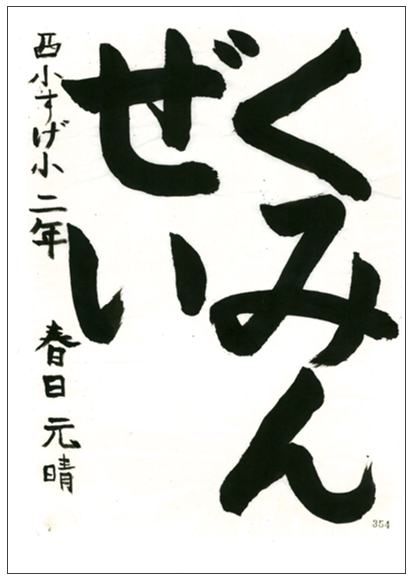 くみん
ぜい
西小すげ小 二年 春日 元晴
354